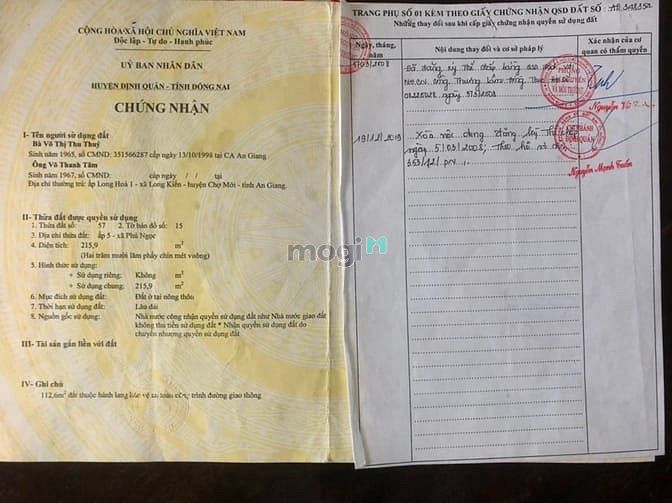 CỘNG HÒA XÃ HỘI CHỦ NGHĨA VIỆT NAM
Độc lập - Tự do - Hạnh phúc
UỶ BAN NHÂN DÂN
HUYỆN ĐỊNH QUÁN - TỈNH ĐỒNG NAI
CHỨNG NHẬN
I- Tên người sử dụng đất
Bà Võ Thị Thu Thuỷ
Sinh năm 1965, số CMND: 351566287 cấp ngày 13/10/1998 tại CA An Giang
Ông Võ Thanh Tâm
Sinh năm 1967, số CMND: cấp ngày / / tại
Địa chỉ thường trú: ấp Long Hoà 1 - xã Long Kiến - huyện Chợ Mới - tỉnh An Giang.
II- Thửa đất được quyền sử dụng
1. Thửa đất số: 57 2. Tờ bản đồ số: 15
3. Địa chỉ thửa đất: ấp 5 - xã Phú Ngọc
4. Diện tích: 215,9 m²
(Hai trăm mười lăm phẩy chín mét vuông)
5. Hình thức sử dụng:
+ Sử dụng riêng: Không m²
+ Sử dụng chung: 215,9 m²
6. Mục đích sử dụng đất: Đất ở tại nông thôn
7. Thời hạn sử dụng đất: Lâu dài
8. Nguồn gốc sử dụng: Nhà nước công nhận quyền sử dụng đất như Nhà nước giao đất
không thu tiền sử dụng đất * Nhận quyền sử dụng đất do
chuyển nhượng quyền sử dụng đất
III- Tài sản gắn liền với đất
IV- Ghi chú
112,6m² đất thuộc hành lang bảo vệ an toàn công trình đường giao thông
mogi
TRANG PHỤ SỐ 01 KÈM THEO GIẤY CHỨNG NHẬN QSD ĐẤT SỐ:
Những thay đổi sau khi cấp giấy chứng nhận quyền sử dụng đất
Ngày, tháng, năm
Nội dung thay đổi và cơ sở pháp lý
Xác nhận của cơ quan có thẩm quyền
5/03/2008
Đã đăng ký thế chấp bằng
ngày 5/3/2008
Nguyễn
19/12/2013
Xóa nội dung đăng ký thế chấp
ngày 5/03/2008; theo hồ sơ
353/12/
Nguyễn Mạnh Tuấn